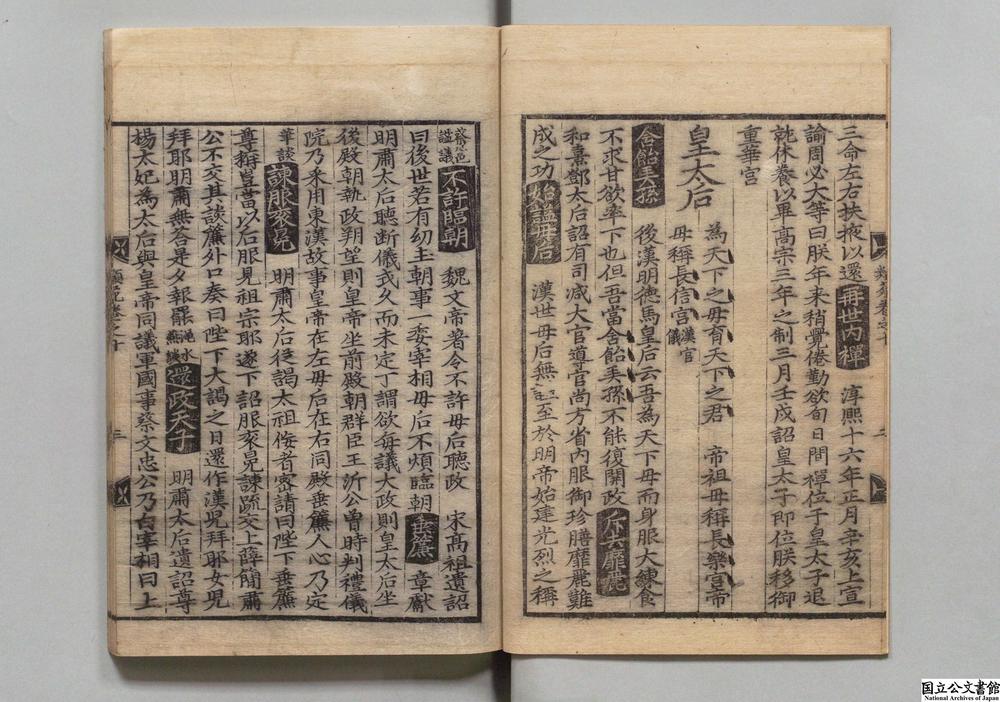 三命左右扶掖以還再世内禪淳熙十六年正月辛亥上宣
諭周必大等曰朕年来稍覺倦勤欲旬日間禪位于皇太子退
就休養以畢高宗三年之制三月壬戌詔皇太子即位朕移御
重華宮
皇太后
為天下之母有天下之君
帝祖母稱長樂宮帝
母稱長信宮漢官儀
含飴弄孫後漢明德馬皇后云吾為天下母而身服大練食
不求甘欲率下也但吾當含飴弄孫不能復關政斥去靡麗
和熹鄧太后詔有司减大官導官尚方省内服御珍膳靡麗難
成之功始諡母后漢世母后無諡至於明帝始建光烈之稱
蔡邕諡議不許臨朝魏文帝著令不許母后聽政宋高祖遺詔
曰後世若有幼主朝事一委宰相母后不煩臨朝垂簾章獻
明肅太后聽断儀式久而未定丁謂欲每議大政則皇太后坐
後殿朝執政朔望則皇帝坐前殿朝群臣王沂公曾時判禮儀
院乃采用東漢故事皇帝在左母后在右同殿垂簾人心乃定
華談諫服衮冕明肅太后従謁太祖侍者密請曰陛下垂簾
尊辯豈當以后服見祖宗耶遂下詔服衮冕諫疏交上薛簡肅
公不交其談簾外口奏曰陛下大謁之日還作漢児拜耶女児
拜耶明肅無答是夕報罷澠水燕談還政天子明肅太后遺詔尊
楊太妃為太后與皇帝同議軍國事蔡文忠公乃白宰相曰上